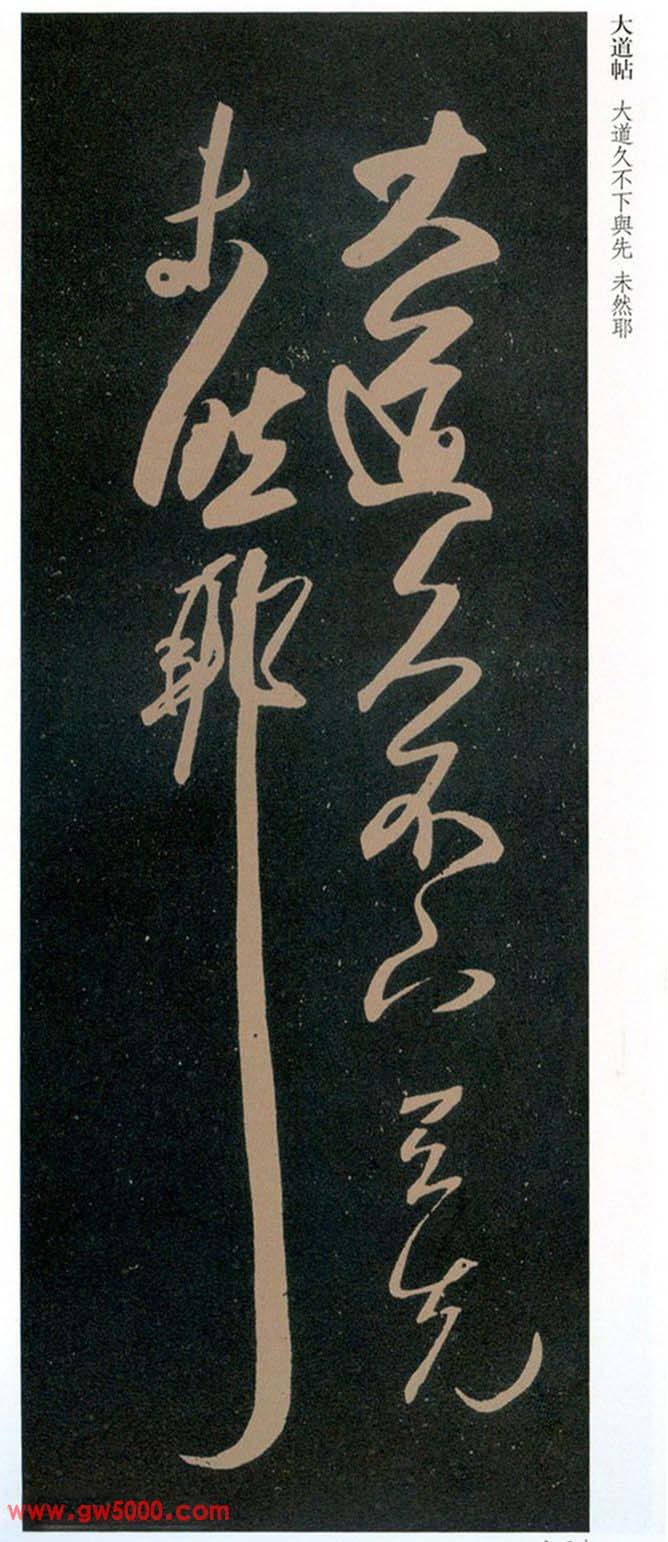 大道帖 大道久不下與先 未然耶
大道久不下與先
未然耶
www.gw5000.com